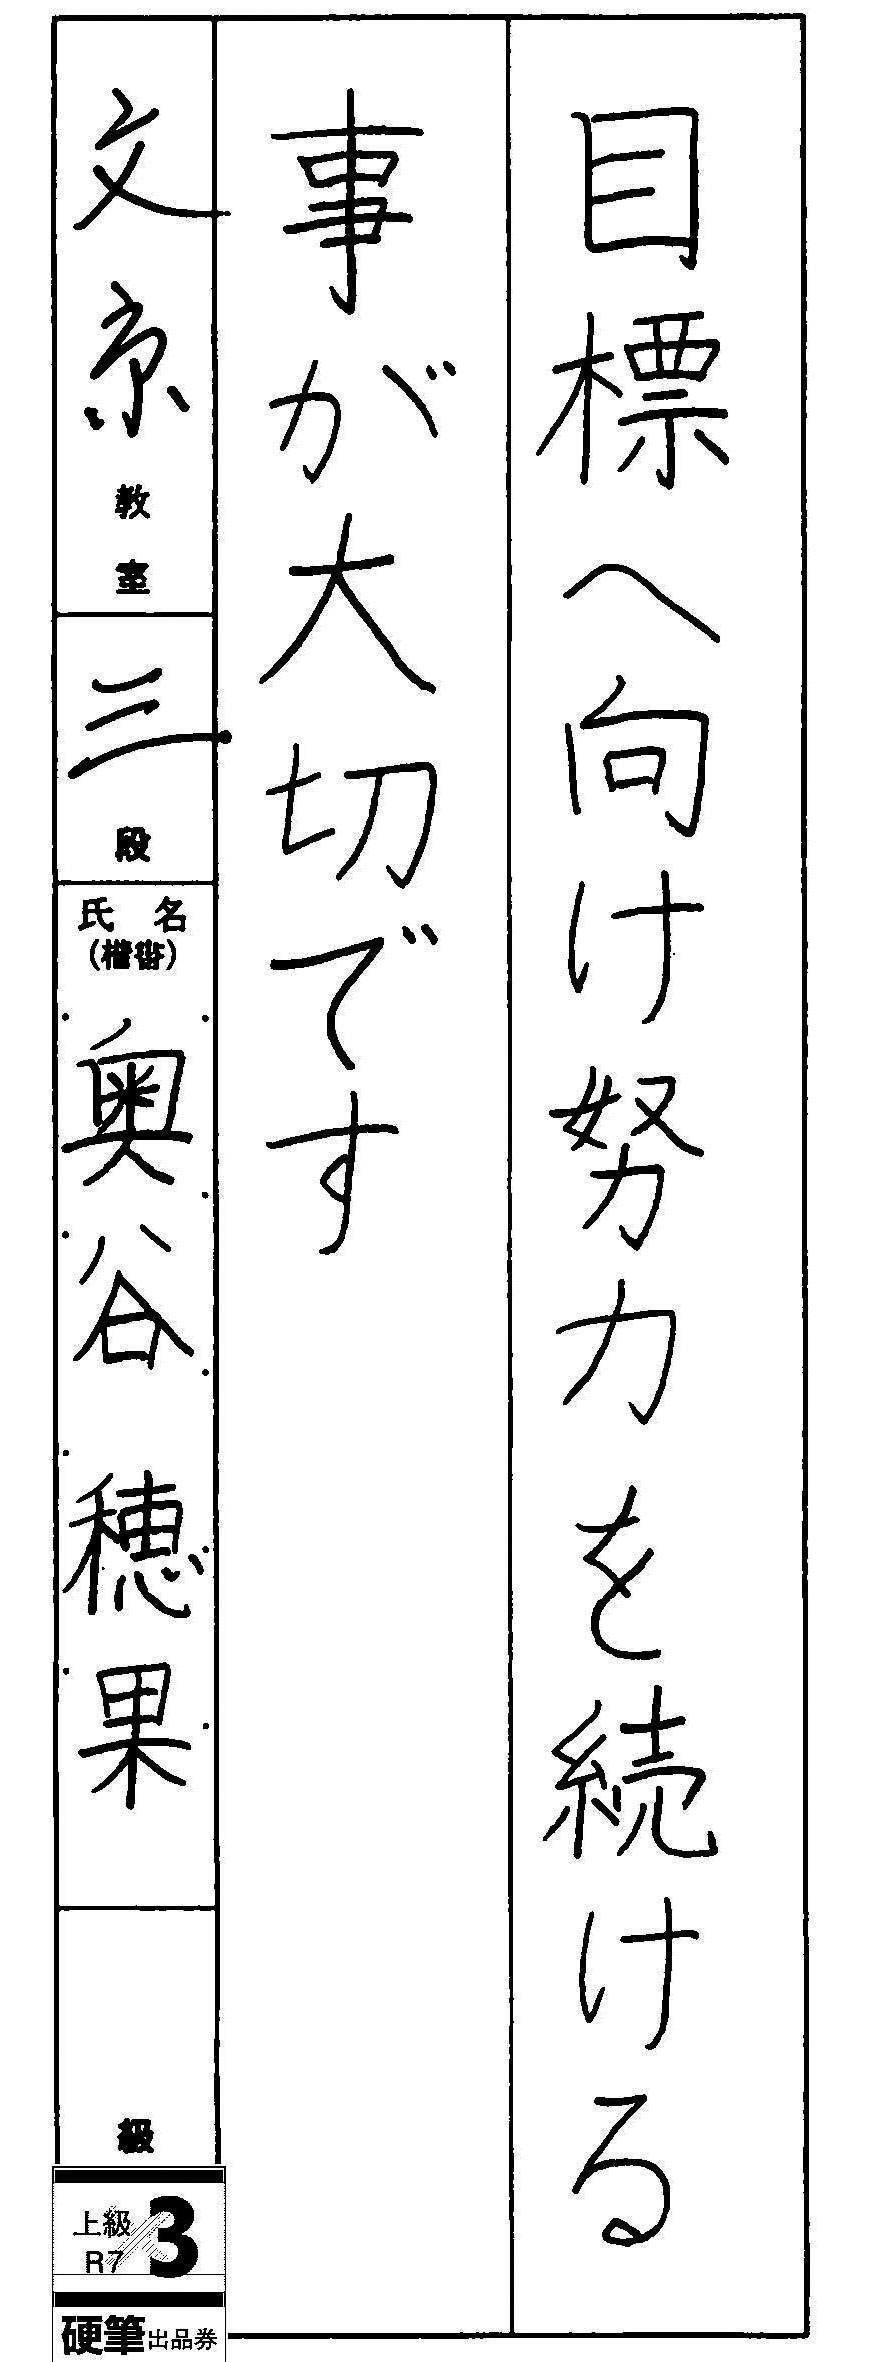 目標へ向け努力を続ける
事が大切です
文京教室
三段
氏名
奥谷穂果
級
上級
R7
3
硬筆出品券